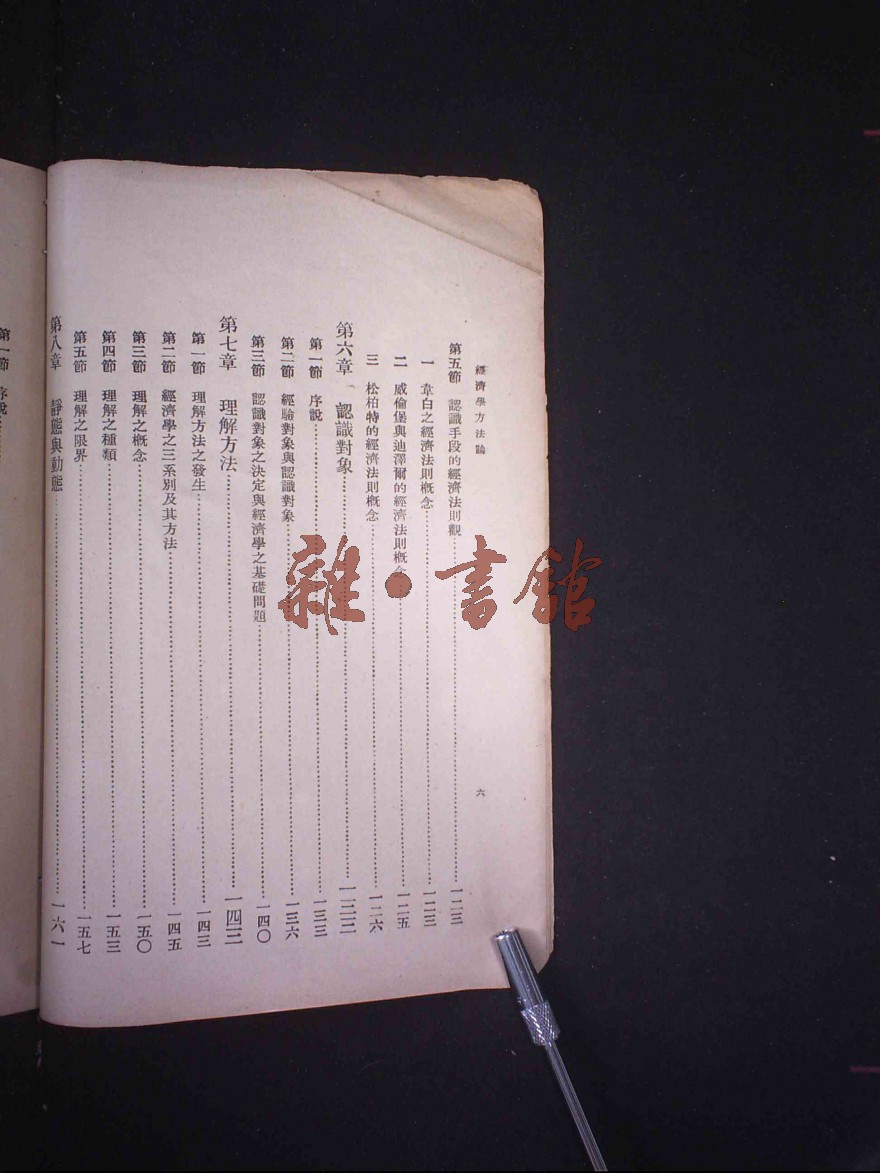 經濟學方法論
六
第五節 認識手段的經濟法則觀……一二三
一 韋白之經濟法則概念……一二三
二 威倫堡與迪澤爾的經濟法則概念……一二五
三 松柏特的經濟法則概念……一二六
第六章 認識對象……一三三
第一節 序說……一三三
第二節 經驗對象與認識對象……一三六
第三節 認識對象之決定與經濟學之基礎問題……一四〇
第七章 理解方法……一四三
第一節 理解方法之發生……一四三
第二節 經濟學之三系別及其方法……一四五
第三節 理解之概念……一五〇
第四節 理解之種類……一五三
第五節 理解之限界……一五七
第八章 靜態與動態……一六一
第一節 序說
雜·書館